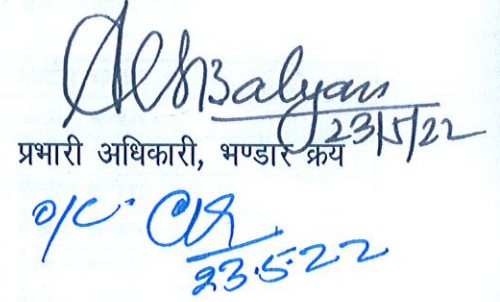 Balyan
23/5/22
प्रभारी अधिकारी, भण्डार क्रय
o/c
23.5.22